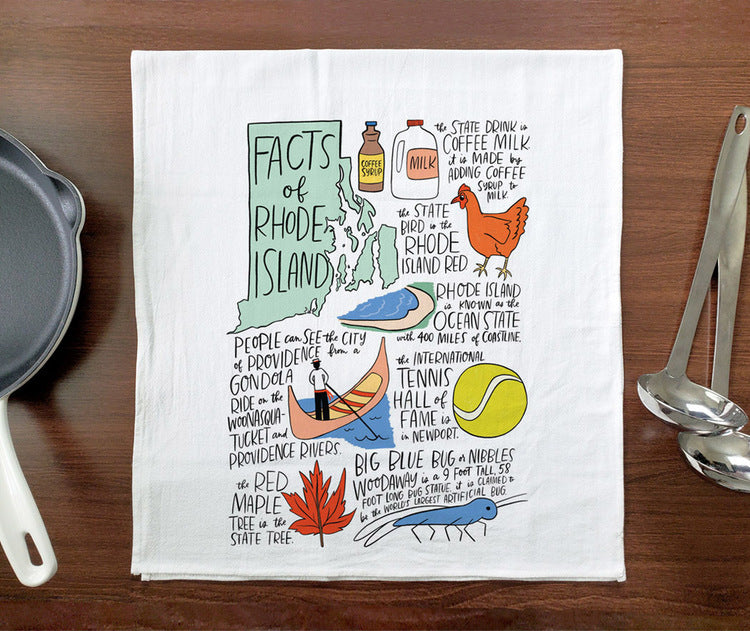 FACTS
of
RHODE
ISLAND
COFFEE
SYRUP
MILK
the STATE DRINK is
COFFEE MILK.
it is MADE by
ADDING COFFEE
SYRUP to
MILK.
the STATE
BIRD is the
RHODE
ISLAND RED
RHODE ISLAND
is KNOWN as the
OCEAN STATE
with 400 MILES of COASTLINE.
PEOPLE can SEE the CITY
of PROVIDENCE from a
GONDOLA
RIDE on the
WOONASQUA-
TUCKET and
PROVIDENCE RIVERS.
the INTERNATIONAL
TENNIS
HALL of
FAME is
in NEWPORT.
the RED
MAPLE
TREE is the
STATE TREE.
BIG BLUE BUG or NIBBLES
WOODAWAY is a 9 FOOT TALL, 58
FOOT LONG BUG STATUE. it is CLAIMED to
be the WORLD'S LARGEST ARTIFICIAL BUG.